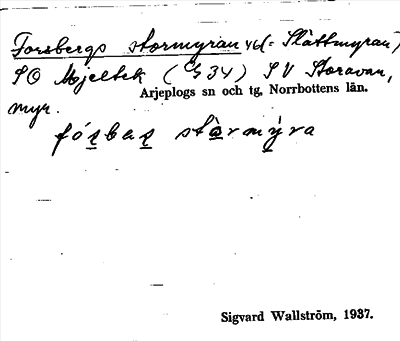 Forsbergs stormyran 46 (= Slåttmyran)
SO Mjeltek (G 34) SV Storavan,
Arjeplogs sn och tg, Norrbottens län.
myr.
fó̱ṣbaṣ stòrmỳra
Sigvard Wallström, 1937.